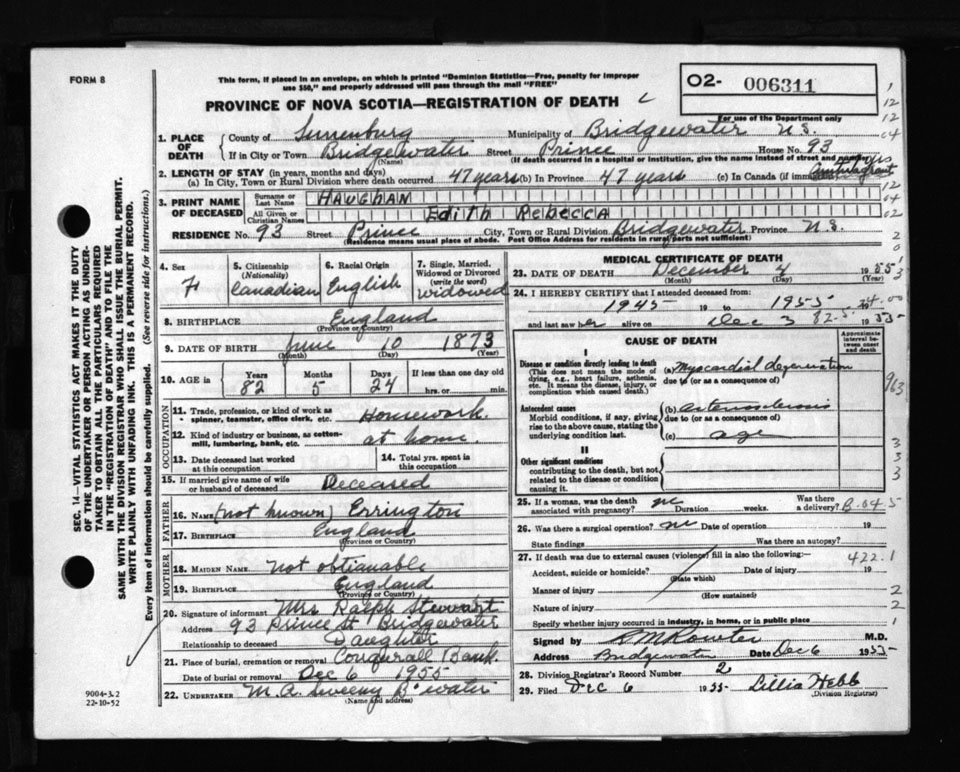 FORM 8
This form, if placed in an envelope, on which is printed "Dominion Statistics—Free, penalty for improper
use $50," and properly addressed will pass through the mail "FREE"
O2- 006311
For use of the Department only
PROVINCE OF NOVA SCOTIA—REGISTRATION OF DEATH
SEC. 14—VITAL STATISTICS ACT MAKES IT THE DUTY
OF THE UNDERTAKER OR PERSON ACTING AS UNDER-
TAKER TO OBTAIN ALL THE PARTICULARS REQUIRED
IN THE "REGISTRATION OF DEATH" AND TO FILE THE
SAME WITH THE DIVISION REGISTRAR WHO SHALL ISSUE THE BURIAL PERMIT.
WRITE PLAINLY WITH UNFADING INK. THIS IS A PERMANENT RECORD.
Every item of information should be carefully supplied. (See reverse side for instructions.)
1. PLACE OF DEATH
County of Lunenburg Municipality of Bridgewater N.S.
If in City or Town Bridgewater Street Prince House No. 93
(Name) (If death occurred in a hospital or institution, give the name instead of street and number)
2. LENGTH OF STAY (in years, months and days)
(a) In City, Town or Rural Division where death occurred 47 years (b) In Province 47 years (c) In Canada (if immigrant)
3. PRINT NAME OF DECEASED
Surname or Last Name HAUGHAN
All Given or Christian Names Edith Rebecca
RESIDENCE No. 93 Street Prince City, Town or Rural Division Bridgewater Province N.S.
(Residence means usual place of abode. Post Office Address for residents in rural parts not sufficient)
4. Sex F
5. Citizenship (Nationality) Canadian
6. Racial Origin English
7. Single, Married, Widowed or Divorced (write the word) widowed
8. BIRTHPLACE England
(Province or Country)
9. DATE OF BIRTH June 10 1873
(Month) (Day) (Year)
10. AGE in Years 82 Months 5 Days 24 If less than one day old hrs. or min.
OCCUPATION
11. Trade, profession, or kind of work as spinner, teamster, office clerk, etc. Housework
12. Kind of industry or business, as cotton-mill, lumbering, bank, etc. at home
13. Date deceased last worked at this occupation
14. Total yrs. spent in this occupation
15. If married give name of wife or husband of deceased Deceased
FATHER
16. Name (not known) Errington
17. BIRTHPLACE England
(Province or Country)
MOTHER
18. MAIDEN NAME not obtianable
19. BIRTHPLACE England
(Province or Country)
20. Signature of informant Mrs Ralph Stewart
Address 93 Prince St. Bridgewater
Relationship to deceased Daughter
21. Place of burial, cremation or removal Conqurall Bank
Date of burial or removal Dec 6 1955
22. UNDERTAKER M.A. Sweeny B'water
(Name and address)
9004-3.2
22-10-52
MEDICAL CERTIFICATE OF DEATH
23. DATE OF DEATH December 4 1955
(Month) (Day) (Year)
24. I HEREBY CERTIFY that I attended deceased from:
1945 to 1955
and last saw her alive on Dec 3 1955
CAUSE OF DEATH
Approximate interval between onset and death
I
Disease or condition directly leading to death
(This does not mean the mode of dying, e.g., heart failure, asthenia, etc. It means the disease, injury, or complication which caused death.)
(a) Myocardial degeneration
due to (or as a consequence of)
Antecedent causes
Morbid conditions, if any, giving rise to the above cause, stating the underlying condition last.
(b) arteriosclerosis
due to (or as a consequence of)
(c) age
II
Other significant conditions
contributing to the death, but not related to the disease or condition causing it.
25. If a woman, was the death associated with pregnancy? no Duration weeks. Was there a delivery? B.04.5
26. Was there a surgical operation? no Date of operation 19
State findings Was there an autopsy?
27. If death was due to external causes (violence) fill in also the following:— 422.1
Accident, suicide or homicide? Date of injury 19
(State which)
Manner of injury
(How sustained)
Nature of injury
Specify whether injury occurred in industry, in home, or in public place
Signed by M.D.
Address Bridgewater Date Dec 6 1955
28. Division Registrar's Record Number 2
29. Filed Dec 6 1955 Lillia Hebb
(Division Registrar)